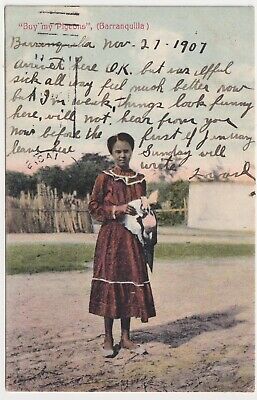 "Buy my Pigeons", (Barranquilla)
Barranquilla Nov-27-1907
arrived here O.K. but was
sick all day feel much better now
but I'm weak, things look funny
here, will not hear from you
now before the first if in way
leave here Sunday will
write